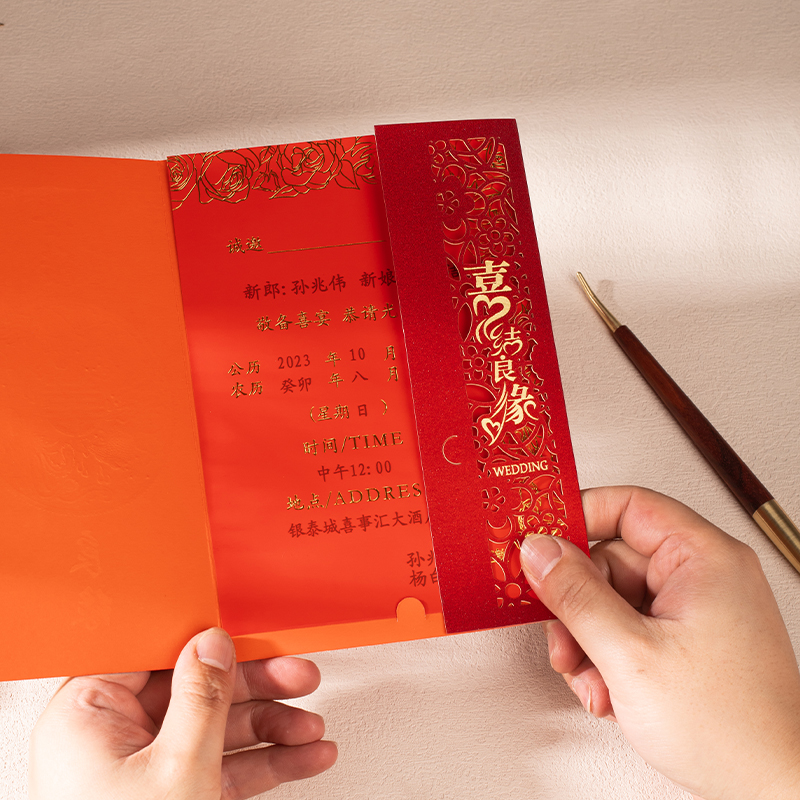 诚邀
新郎:孙兆伟 新娘
敬备喜宴 恭请
公历 2023 年 10 月
农历 癸卯 年 八 月
(星期 日 )
时间/TIME
中午12:00
地点/ADDRES
银泰城喜事汇大酒
孙兆
杨
喜结良缘
WEDDING